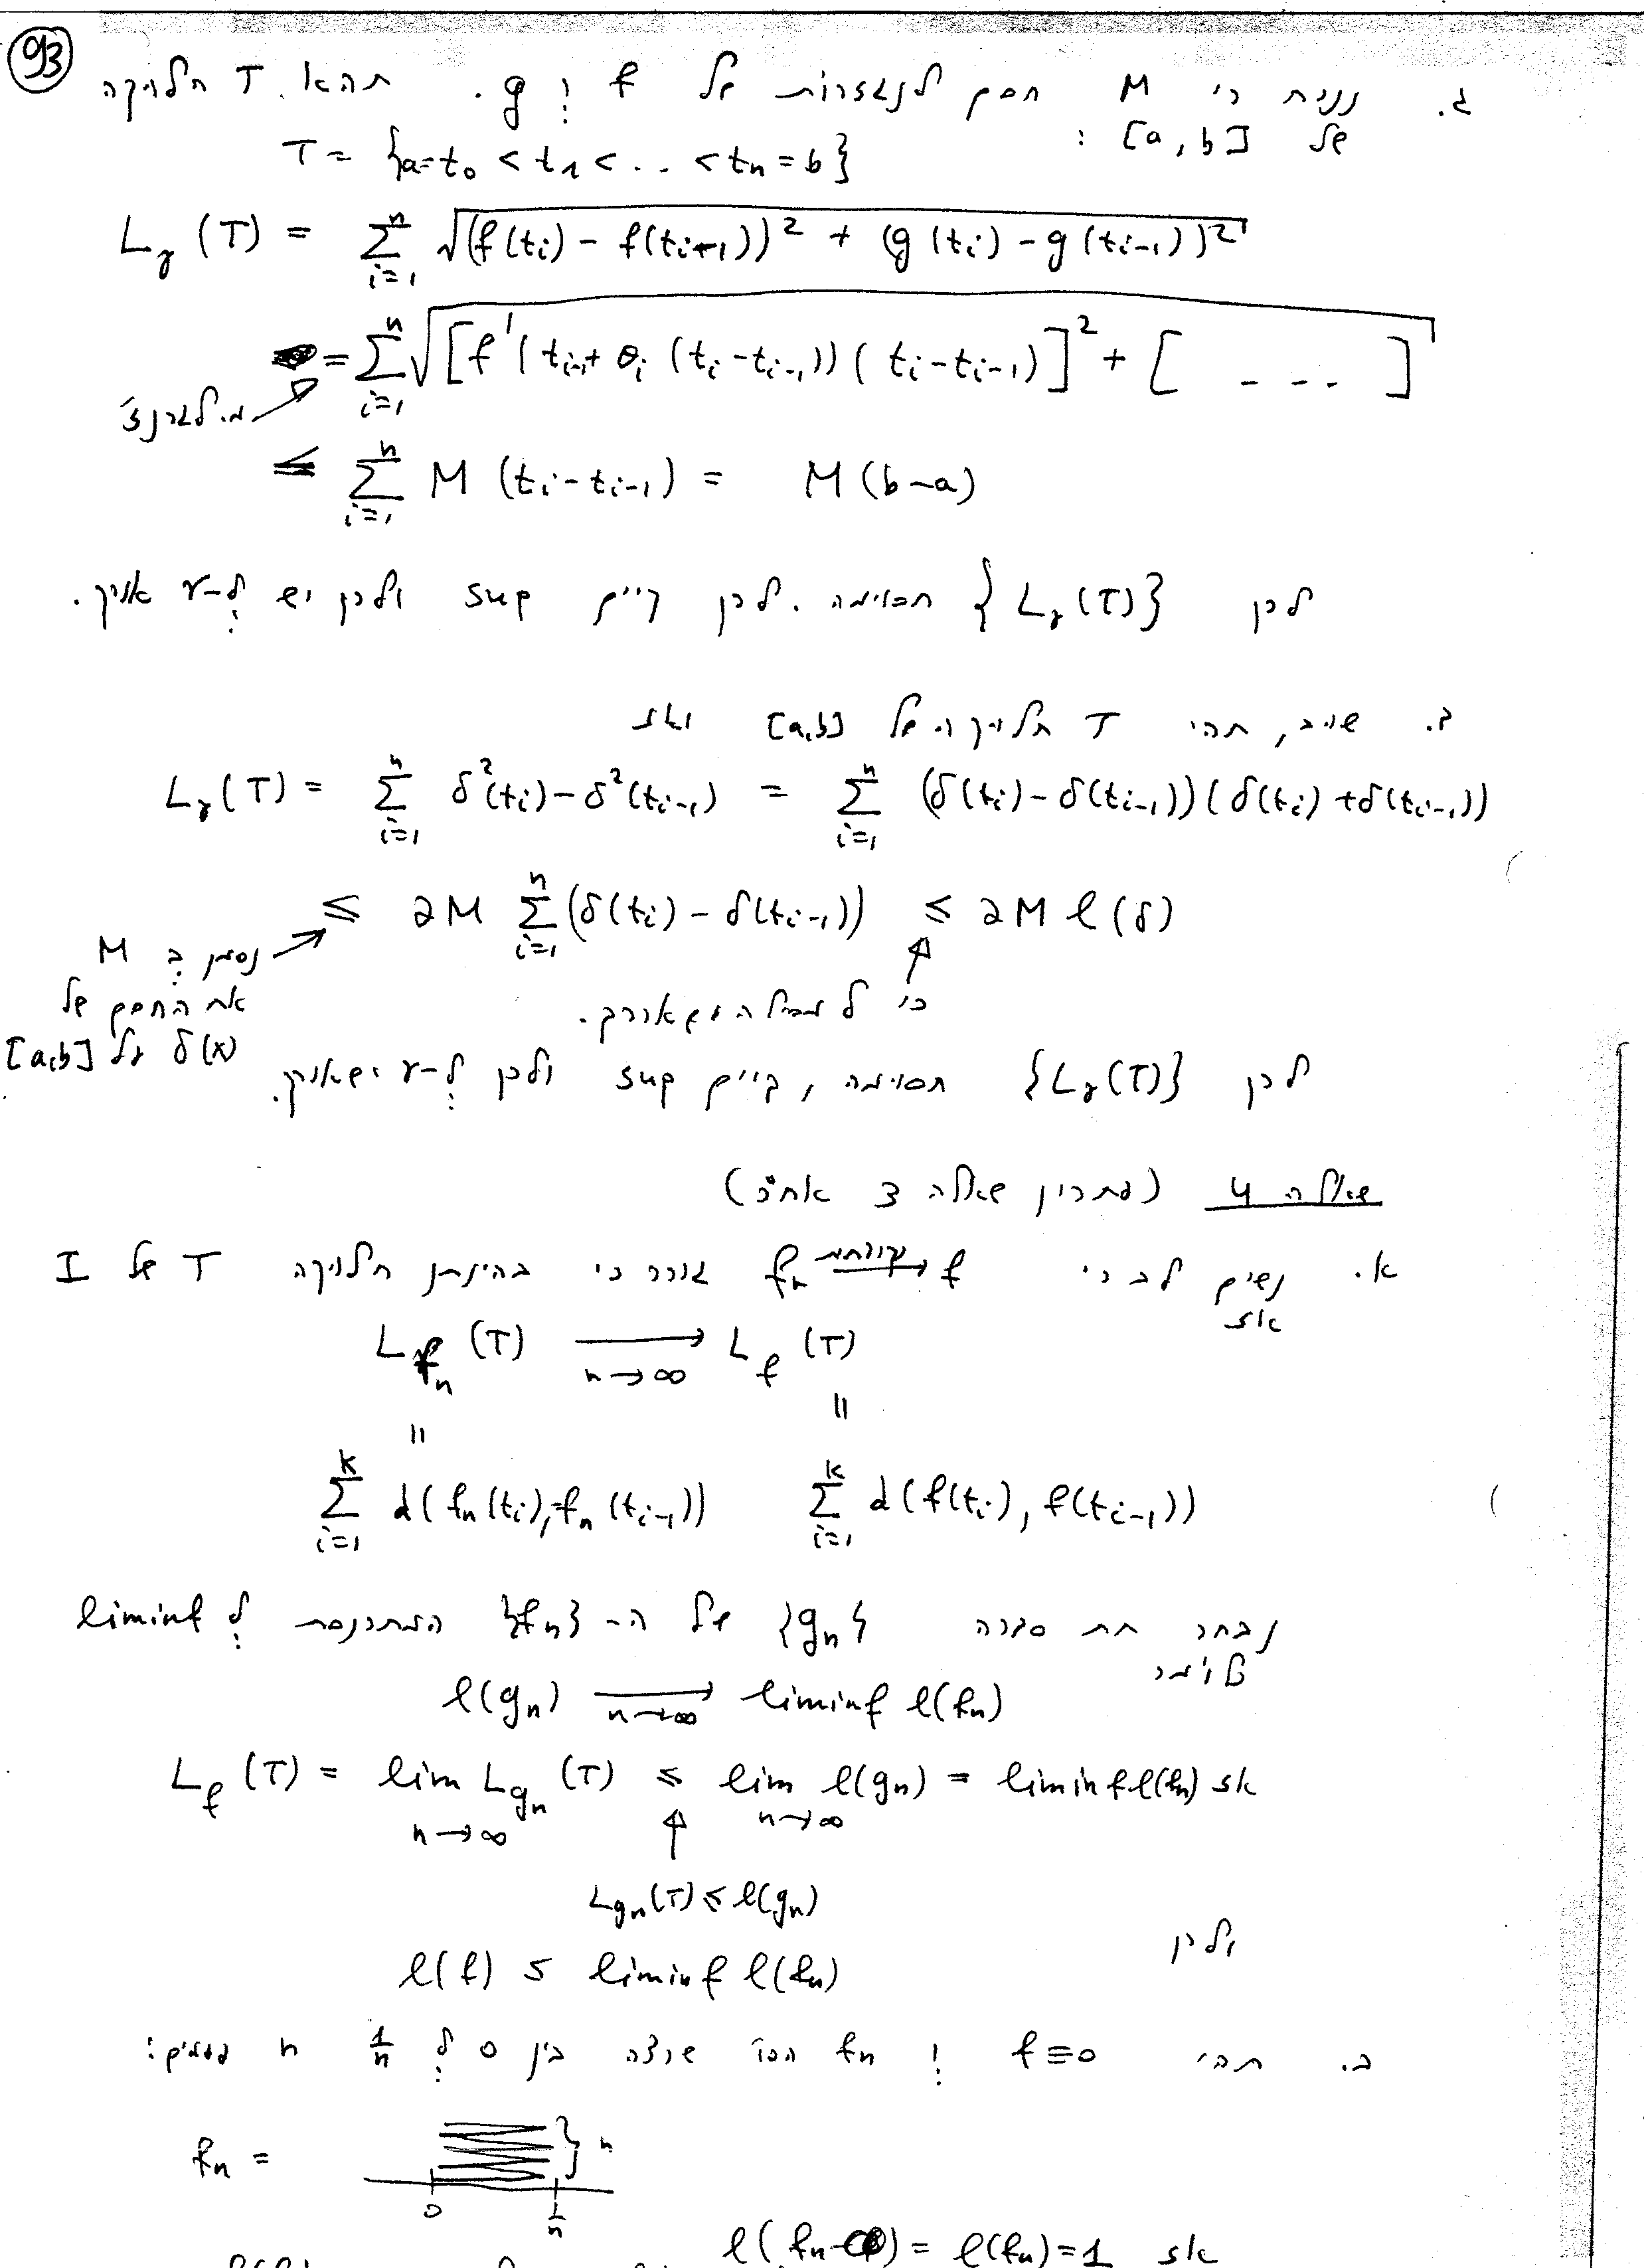 93
ג. נניח כי M חסם לנגזרות של f ו g. תהא T חלוקה
של [a,b] :
T = {a=t₀ < t₁ < ... < tₙ = b}
L_γ(T) = Σ_{i=1}^{n} √((f(t_i) - f(t_{i-1}))² + (g(t_i) - g(t_{i-1}))²)
= Σ_{i=1}^{n} √([f'(t_{i-1} + θ_i (t_i - t_{i-1}))(t_i - t_{i-1})]² + [ --- ])
מ.לגרנג'
≤ Σ_{i=1}^{n} M (t_i - t_{i-1}) = M(b-a)
לכן {L_γ(T)} חסומה. לכן קיים sup ולכן יש ל-γ אורך.
ב. שוב, תהי T חלוקה של [a,b] ואז
L_γ(T) = Σ_{i=1}^{n} δ²(t_i) - δ²(t_{i-1}) = Σ_{i=1}^{n} (δ(t_i) - δ(t_{i-1}))(δ(t_i) + δ(t_{i-1}))
≤ 2M Σ_{i=1}^{n} (δ(t_i) - δ(t_{i-1})) ≤ 2M l(δ)
נסמן ב M
את החסם של
δ(x) על [a,b]
כי δ אורך.
לכן {L_γ(T)} חסומה, קיים sup ולכן ל-γ יש אורך.
שאלה 4 (פתרון שאלה 3 אח"כ)
א. נשים לב כי fₙ → f גורר כי בהינתן חלוקה T של I
אז
L_{fₙ}(T) →_{n→∞} L_f(T)
= =
Σ_{i=1}^{k} d(fₙ(t_i), fₙ(t_{i-1})) Σ_{i=1}^{k} d(f(t_i), f(t_{i-1}))
נבחר תת סדרה {gₙ} של ה- {fₙ} המתכנסת ל liminf
כלומר
l(gₙ) →_{n→∞} liminf l(fₙ)
אז L_f(T) = lim_{n→∞} L_{gₙ}(T) ≤ lim_{n→∞} l(gₙ) = liminf l(fₙ)
L_{gₙ}(T) ≤ l(gₙ)
ולכן
l(f) ≤ liminf l(fₙ)
ב. תהי f≡0 ו fₙ הפו' שרצה בין 0 ל 1/n n פעמים:
fₙ =
n
0 1/n
אז l(fₙ) = l(fₙ) = 1